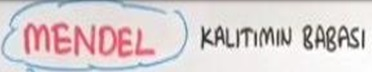 MENDEL KALITIMIN BABASI